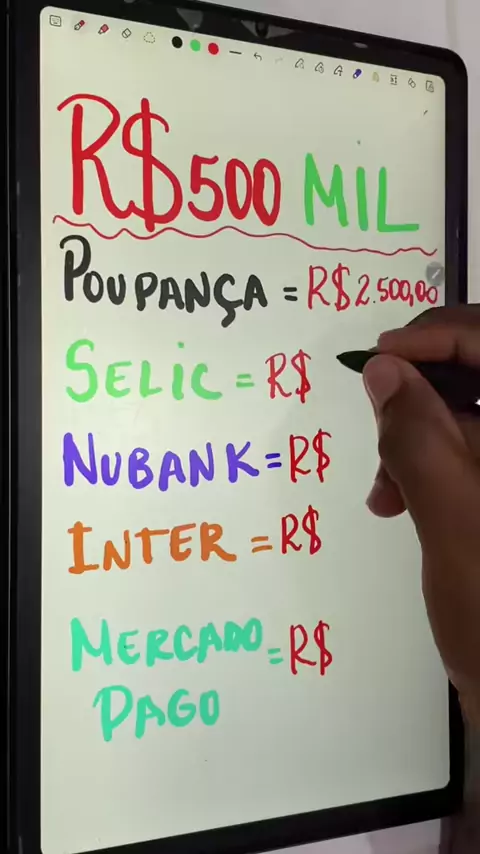 R$500 MIL
POUPANÇA = R$2.500,00
SELIC = R$
NUBANK = R$
INTER = R$
MERCADO = R$
PAGO